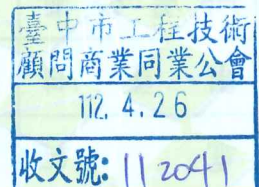 臺中市工程技術
顧問商業同業公會
112. 4. 26
收文號: 112041